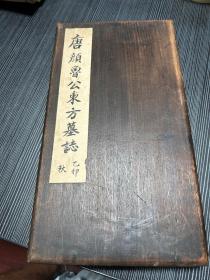 唐顔魯公東方墓誌
乙卯
秋